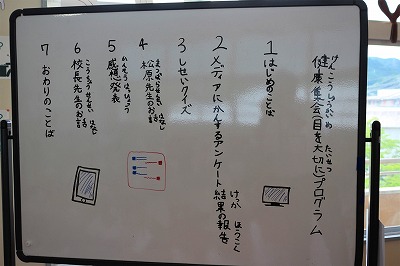 健康集会(目を大切に)プログラム
けんこうしゅうかい め たいせつ
1 はじめのことば
2 メディアにかんするアンケート結果の報告
けっか ほうこく
3 しせいクイズ
4 木原先生のお話
せんせい はなし
5 感想発表
かんそうはっぴょう
6 校長先生のお話
こうちょうせんせい はなし
7 おわりのことば